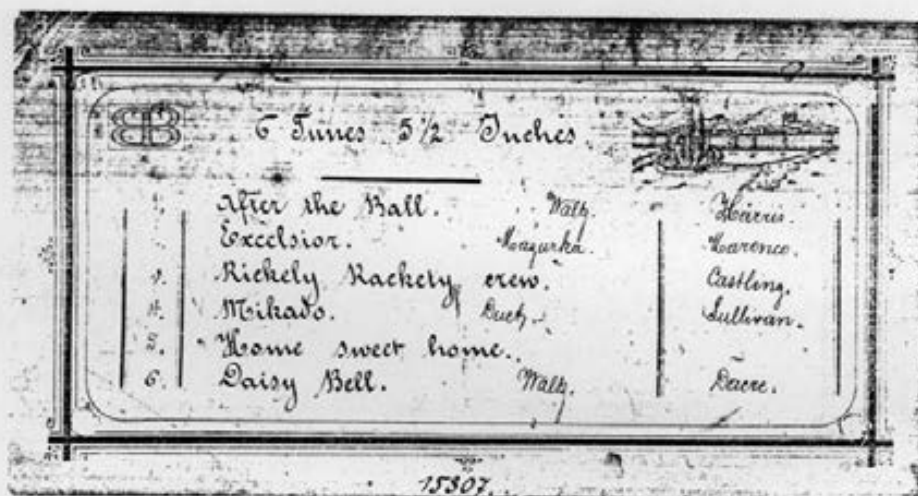 6 Tunes 5 1/2 Inches
1. After the Ball. Waltz. Harris.
Excelsior. Mazurka. Marenco.
3. Rickety Rackety crew. Castling.
4. Mikado. Duett. Sullivan.
5. Home sweet home.
6. Daisy Bell. Waltz. Dacre.
15307.